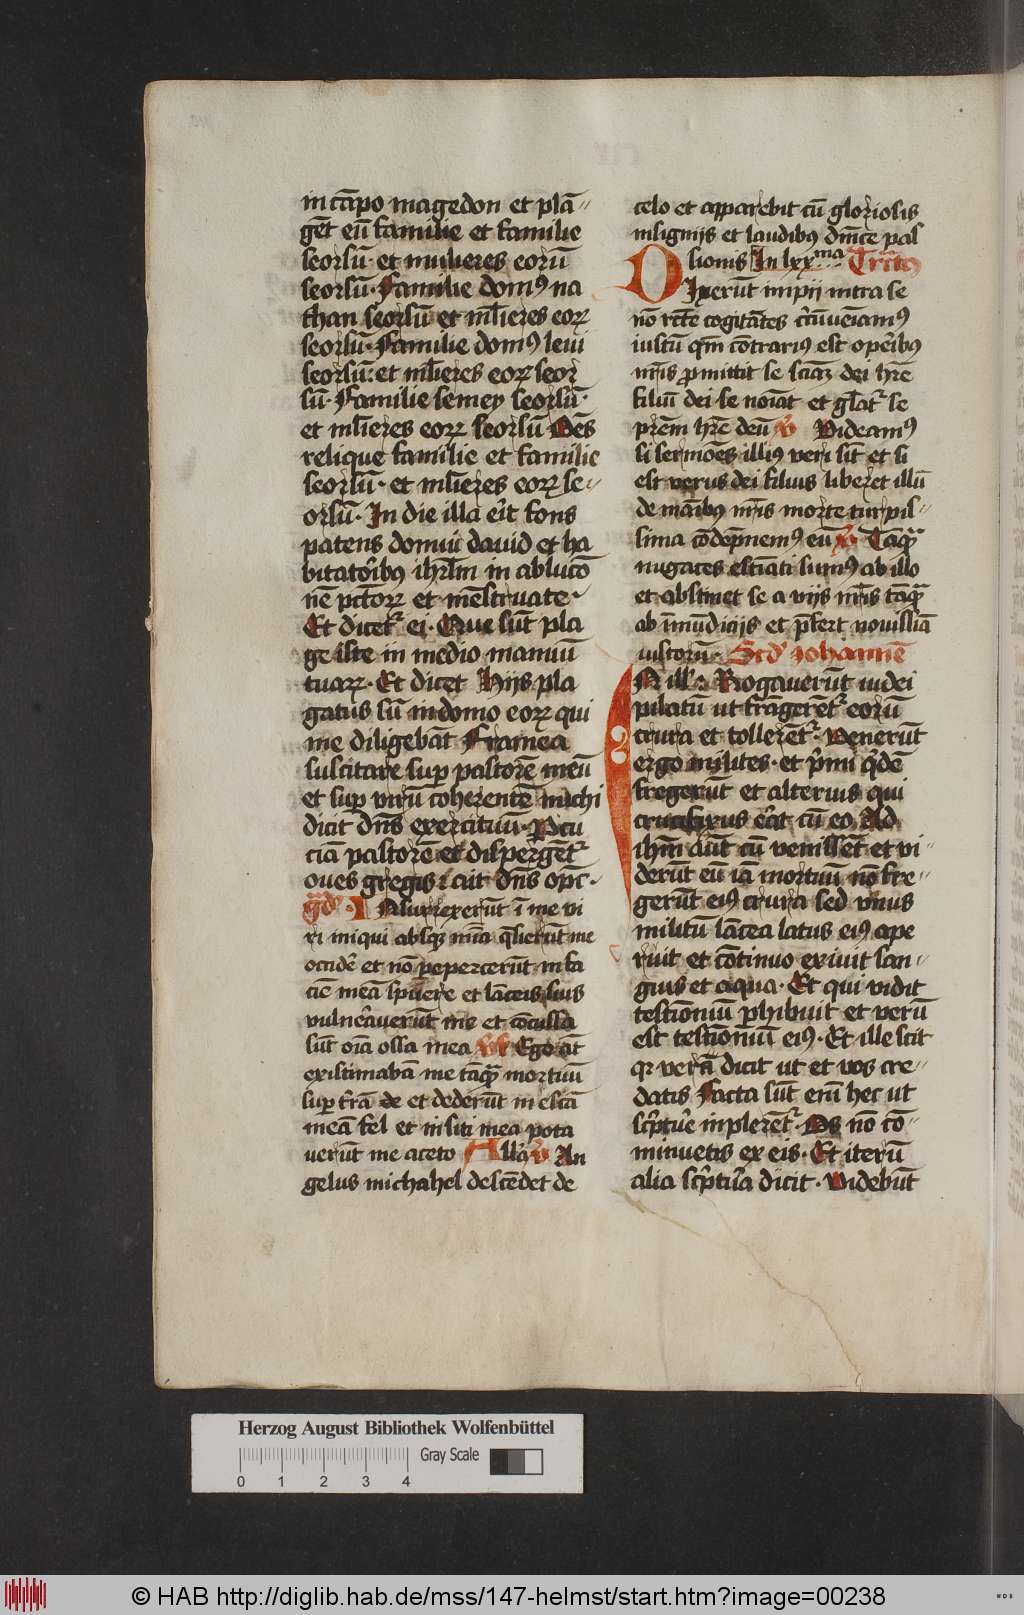 in cāpo magedon et plā-
gēt eū familie et familie
seorsū· et mulieres eorū
seorsū· Familie domꝰ na
than seorsū et ml̄ieres eoꝝ
seorsū· Familie domꝰ leui
seorsū: et ml̄ieres eoꝝ seor
sū· Familie semey seorsū·
et ml̄ieres eoꝝ seorsū Oēs
relique familie et familie
seorsū· et ml̄ieres eoꝝ se-
orsū· In die illa erit fons
patens domui dauid et ha
bitatoribꝰ ihrl̄m in ablucō
nē pctōꝝ et mēstruate·
Et dicetᷣ ei· Que sūt pla
ge iste in medio manuū
tuaꝝ· Et dicet Hijs pla
gatus sū in domo eoꝝ qui
me diligebāt Framea
suscitare suꝑ pastorē meū
et suꝑ virū coherentē michi
dicit dn̄s exercituū· Pcu
ciā pastorē et dispergētᷣ
oues gregis : ait dn̄s opc·
Gd̄ · Insurrexerūt ī me vi
ri iniqui absqꝫ mīa q̄sierūt me
occidē et nō pepercerūt in fa
ciē meā spuere et lāceis suis
vulnerauerūt me et cōcussa
sūt oīa ossa mea v̄ Ego āt
existimabā me tāqᷓ mortuū
suꝑ t̄rā de et dederūt in escā
meā fel et in siti mea pota
uerūt me aceto Allā v̄ An
gelus michahel descēdet de
celo et apparebit cū gloriosis
insignijs et laudibꝰ dn̄ice pas
sionis In lxxᵐᵃ Tractꝰ
Dixerūt impii intra se
nō rcte cogitātes c̄cūueīamꝰ
iustū qm̄ cōtrariꝰ est operibꝰ
nr̄is ꝓmittit se sciāꝫ dei hr̄e
filiū dei se noīat et gl̄atᷣ se
pr̄em hr̄e deū v̄ Videamꝰ
si sermōes illiꝰ veri sīt et si
est verus dei filius liberet illū
de manibꝰ nr̄is morte turpis-
sima cōdēpnemꝰ eū v̄ Tāqᷓ
nugaces estīati sumꝰ ab illo
et abstinet se a vijs nr̄is tāqᷓ
ab īmūdicijs et p̄fert nouissīa
iustorū· Scd̄ iohannē
In ill : Rogauerūt iudei
pilatū ut frāgerētᷣ eorū
crura et tollerētᷣ· Venerūt
ergo milites· et p̄mi q̄dē
fregerūt et alterius qui
crucifixus erat cū eo Ad
ihm̄ aūt cū venissēt et vi-
derūt eū iā mortuū nō fre-
gerūt eiꝰ crura sed vnus
militū lācea latus eiꝰ ape
ruit et cōtinuo exiuit san-
guis et aqua· Et qui vidit
testioniū ꝑhibuit et verū
est testioniū eiꝰ· Et ille scit
qꝛ vera dicit ut et vos cre-
datis Facta sūt em̄ hec ut
sc̄ptuē inplerētᷣ· Os nō cō-
minuetis ex eis· Et iterū
alia sc̄ptura dicit· Videbūt
Herzog August Bibliothek Wolfenbüttel
Gray Scale
0 1 2 3 4
© HAB http://diglib.hab.de/mss/147-helmst/start.htm?image=00238